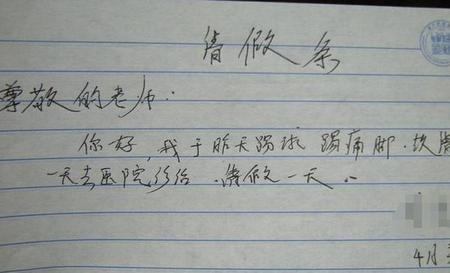 请假条
尊敬的老师:
你好,我于昨天踢球踢痛脚.故请
一天去医院诊治.请假一天..
4月